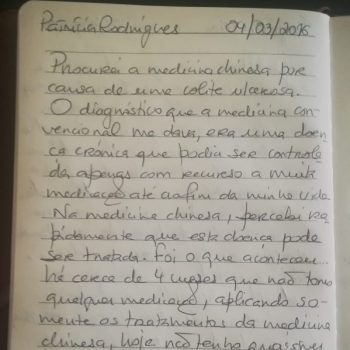 Patrícia Rodrigues 04/03/2015
Procurei a medicina chinesa por
causa de uma colite ulcerosa.
O diagnóstico que a medicina con-
vencional me dava, era uma doen-
ça crónica que podia ser controla-
da apenas com recurso a muita
medicação até ao fim da minha vida.
Na medicina chinesa, percebi ra-
pidamente que esta doença pode
ser tratada. Foi o que aconteceu...
há cerca de 4 meses que não tomo
qualquer medicação, aplicando so-
mente os tratamentos da medicina
chinesa, hoje não tenho quaisquer